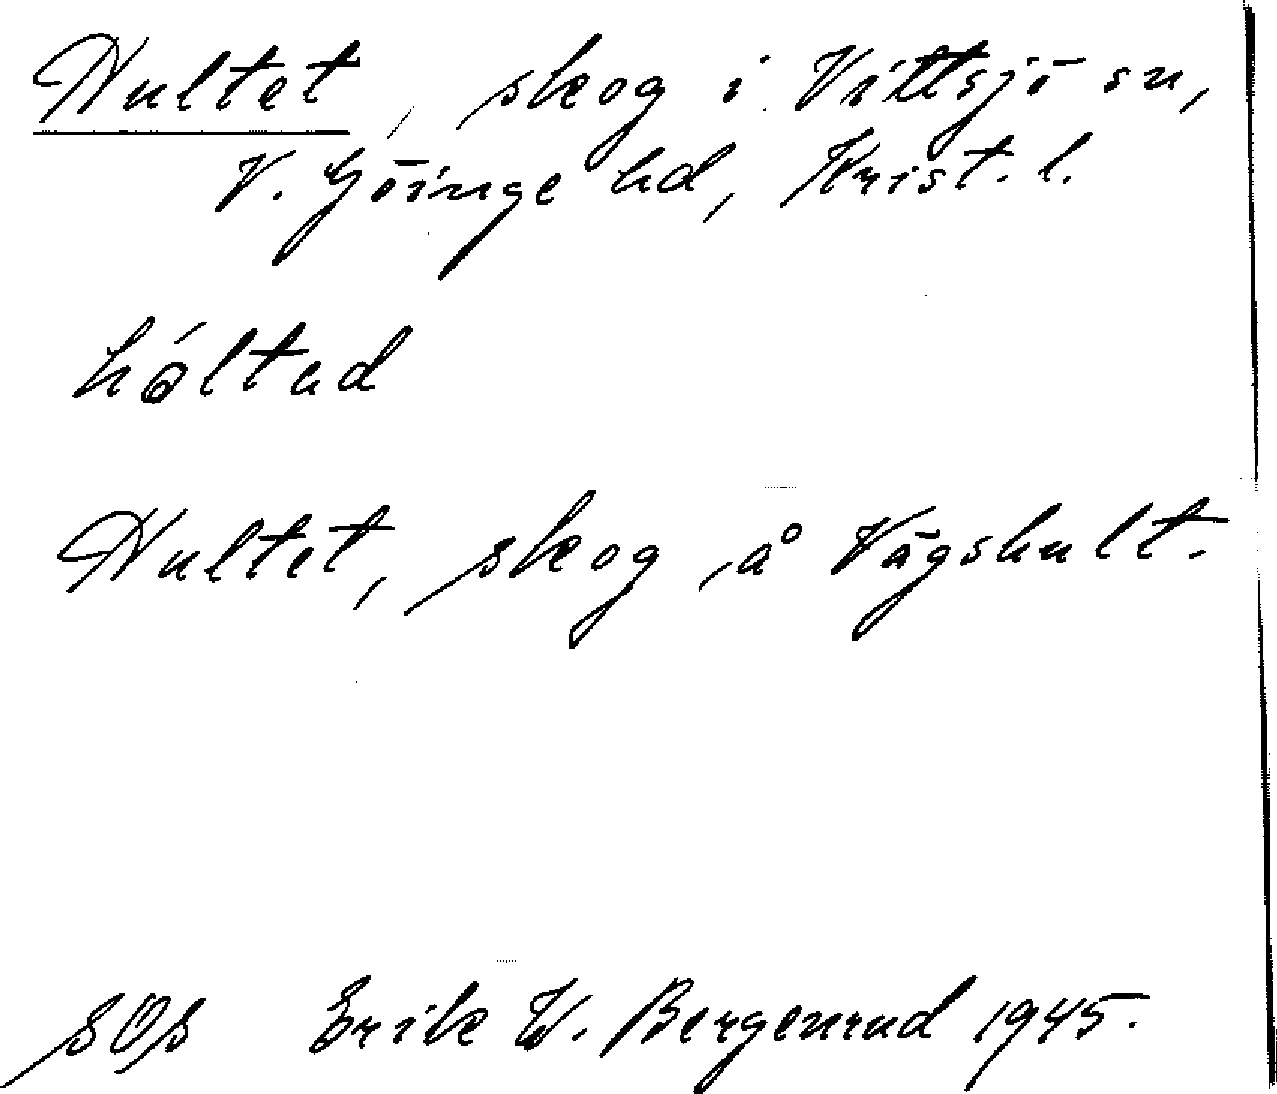 Hultet, skog i Vittsjö sn,
V. Göinge hd, Krist. l.
hóltad
Hultet, skog å Vågshult.
SOS Erik W. Bergenrud 1945.